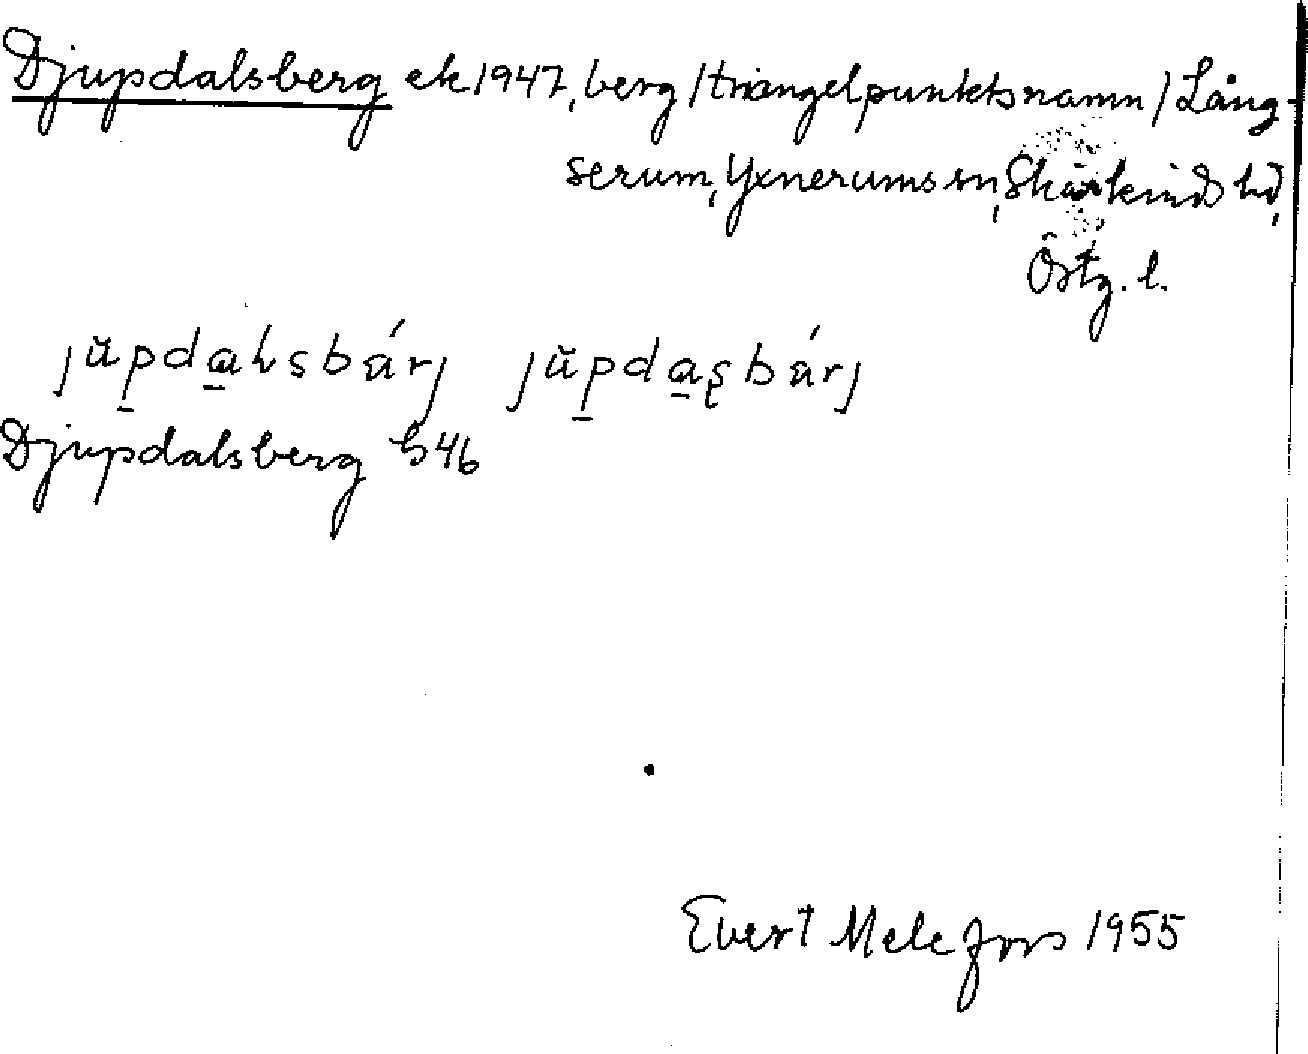 Djupdalsberg ek 1947, berg /triangelpunktsnamn/ Lång-
serum, Yxnerums sn, Skärkinds hd,
Östg. l.
jŭpdaɫsbárj jŭpdaʂbárj
Djupdalsberg h46
Evert Melefors 1955